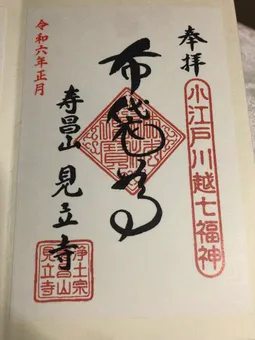 奉拝
小江戸川越七福神
布袋尊
令和六年正月
寿昌山 見立寺
浄土宗
寿昌山
見立寺